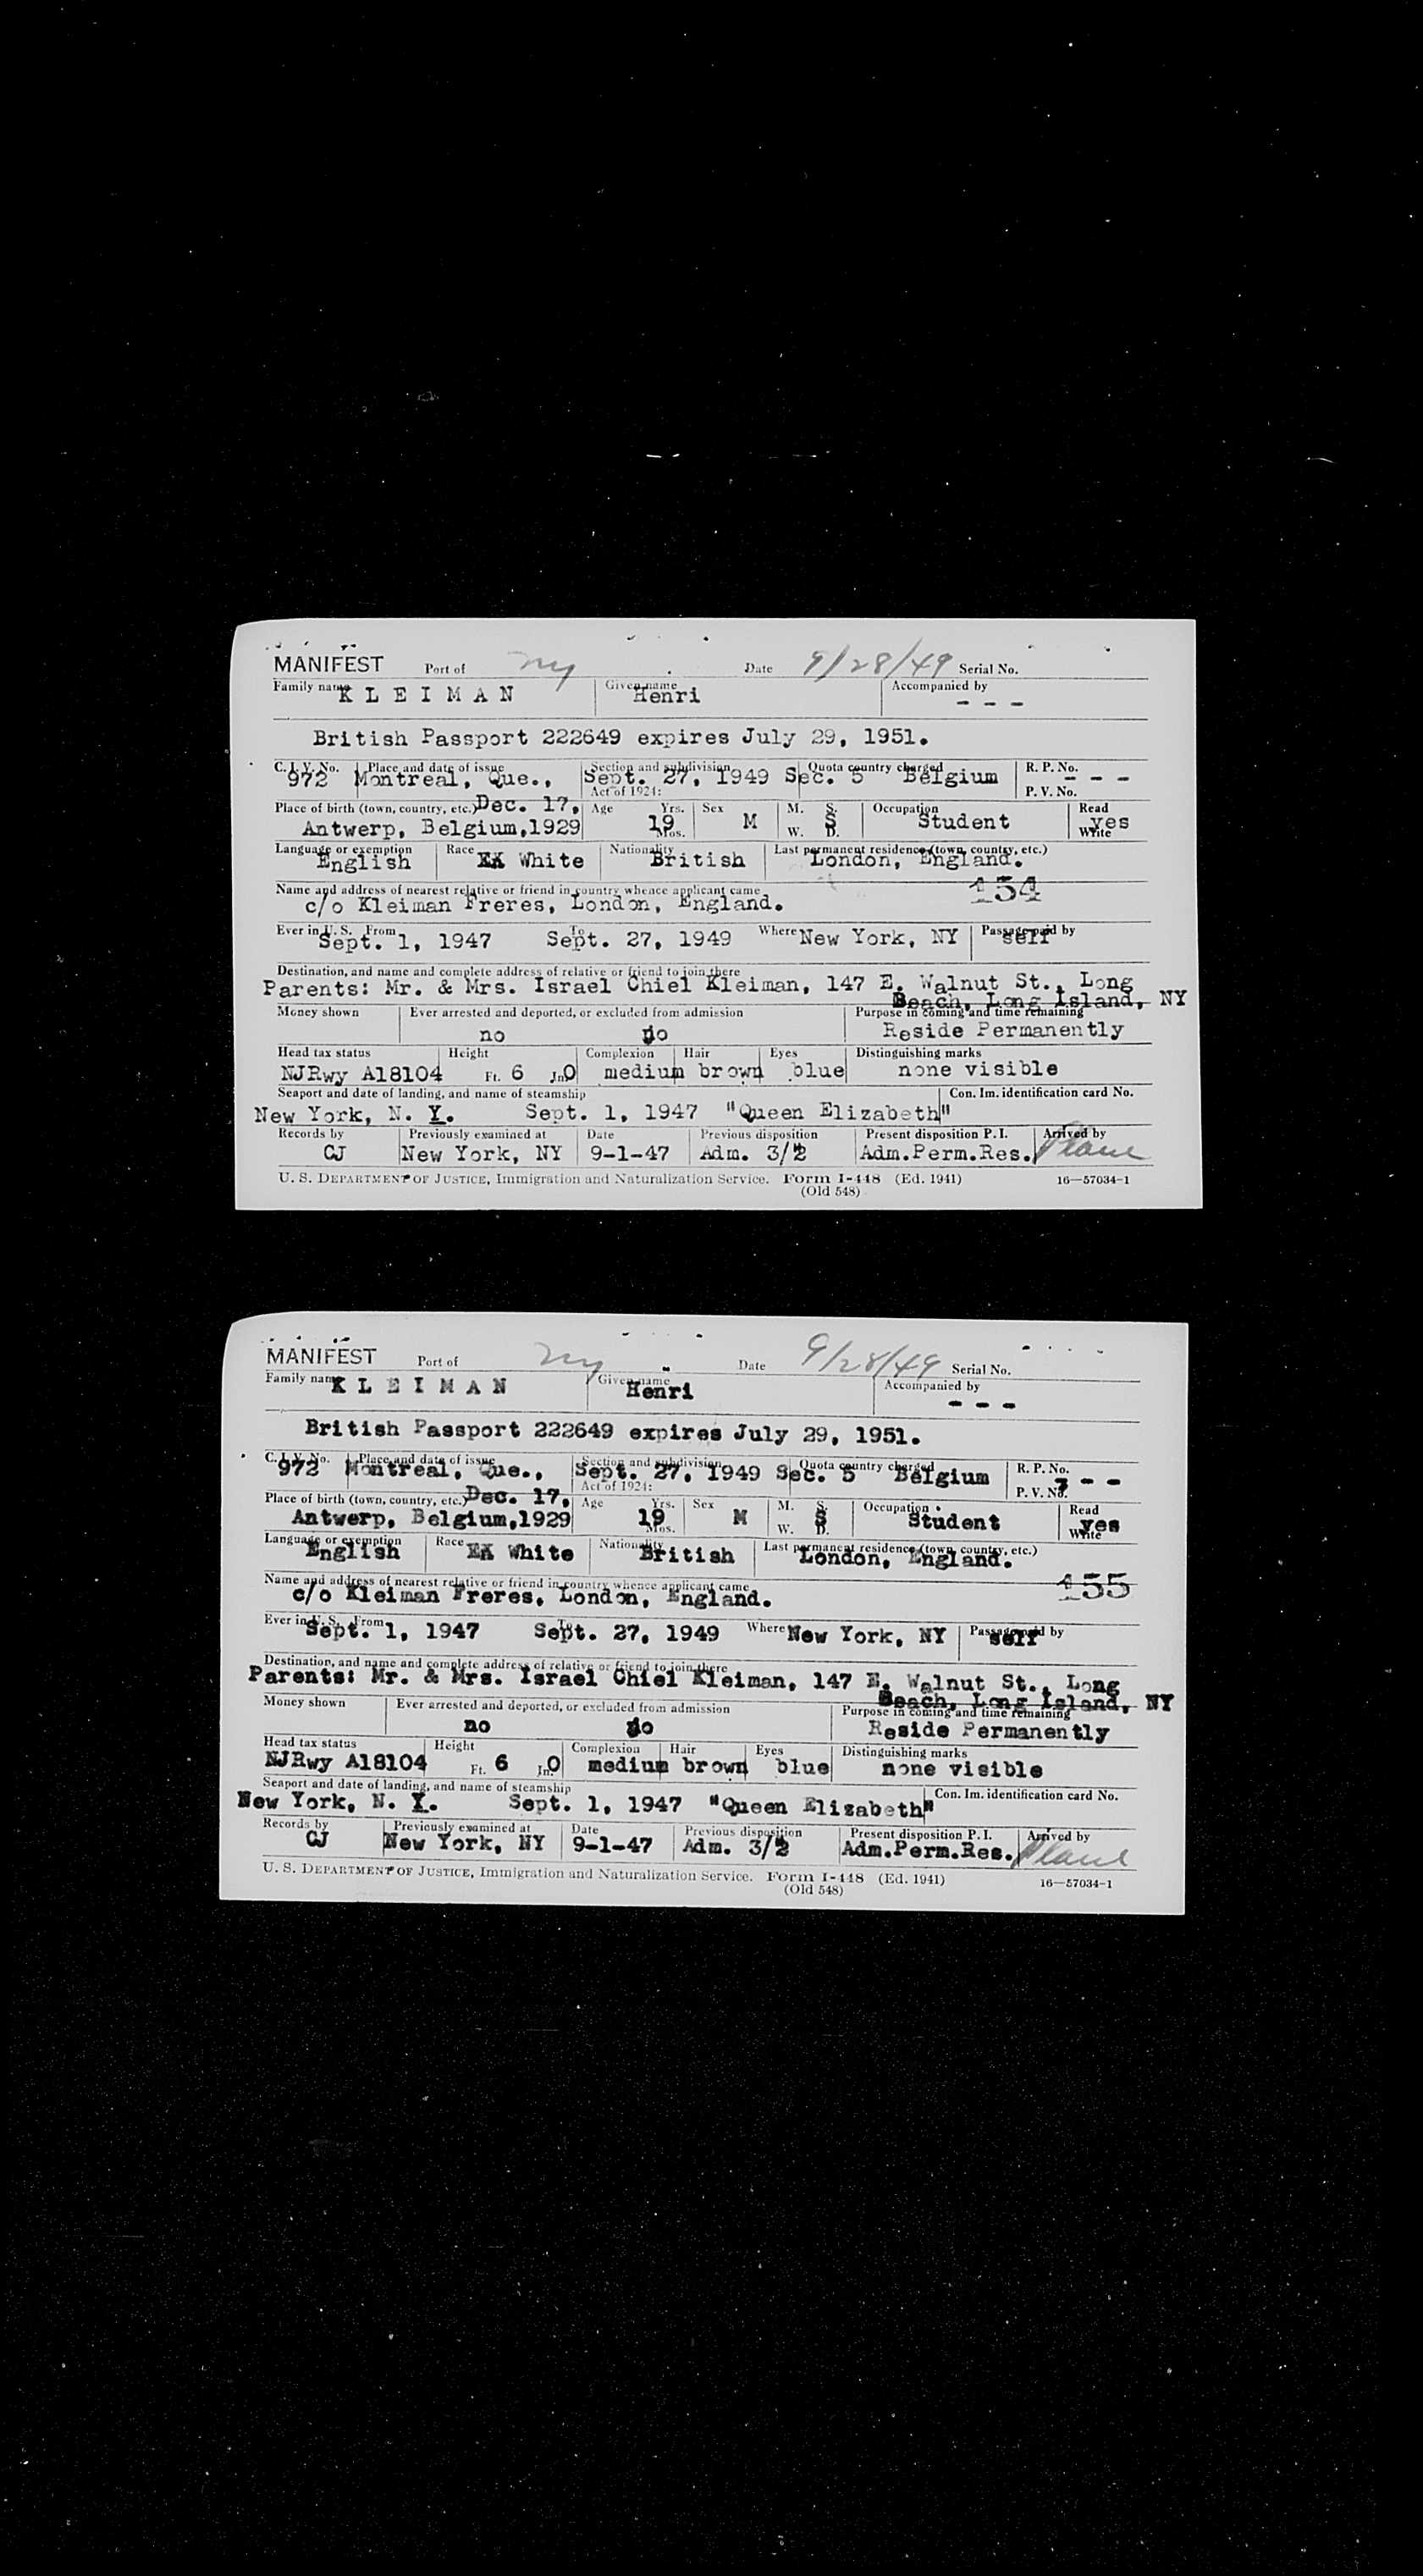 MANIFEST Port of NY Date 9/28/49 Serial No.
Family name KLEIMAN Given name Henri Accompanied by - - -
British Passport 222649 expires July 29, 1951.
C. I. V. No. Place and date of issue Section and subdivision Quota country charged R. P. No.
972 Montreal, Que., Sept. 27, 1949 Sec. 5 Belgium - - -
Act of 1924: P. V. No.
Place of birth (town, country, etc.) Dec. 17, Age Yrs. Sex M. S. Occupation Read
Antwerp, Belgium, 1929 19 M S Student yes
Mos. W. D. Write
Language or exemption Race Nationality Last permanent residence (town, country, etc.)
English White British London, England.
Name and address of nearest relative or friend in country whence applicant came 154
c/o Kleiman Freres, London, England.
Ever in U. S. From To Where New York, NY Passage paid by
Sept. 1, 1947 Sept. 27, 1949 self
Destination, and name and complete address of relative or friend to join there
Parents: Mr. & Mrs. Israel Chiel Kleiman, 147 E. Walnut St., Long
Beach, Long Island, NY
Money shown Ever arrested and deported, or excluded from admission Purpose in coming and time remaining
no no Reside Permanently
Head tax status Height Complexion Hair Eyes Distinguishing marks
NJRwy A18104 Ft. 6 In. 0 medium brown blue none visible
Seaport and date of landing, and name of steamship Con. Im. identification card No.
New York, N. Y. Sept. 1, 1947 "Queen Elizabeth"
Records by Previously examined at Date Previous disposition Present disposition P. I. Arrived by
CJ New York, NY 9-1-47 Adm. 3/2 Adm.Perm.Res. Plane
U. S. DEPARTMENT OF JUSTICE, Immigration and Naturalization Service. Form I-448 (Ed. 1941) 16—57034-1
(Old 548)
MANIFEST Port of NY Date 9/28/49 Serial No.
Family name KLEIMAN Given name Henri Accompanied by - - -
British Passport 222649 expires July 29, 1951.
C. I. V. No. Place and date of issue Section and subdivision Quota country charged R. P. No.
972 Montreal, Que., Sept. 27, 1949 Sec. 5 Belgium - - -
Act of 1924: P. V. No.
Place of birth (town, country, etc.) Dec. 17, Age Yrs. Sex M. S. Occupation Read
Antwerp, Belgium, 1929 19 M S Student yes
Mos. W. D. Write
Language or exemption Race Nationality Last permanent residence (town, country, etc.)
English White British London, England.
Name and address of nearest relative or friend in country whence applicant came 155
c/o Kleiman Freres, London, England.
Ever in U. S. From To Where New York, NY Passage paid by
Sept. 1, 1947 Sept. 27, 1949 self
Destination, and name and complete address of relative or friend to join there
Parents: Mr. & Mrs. Israel Chiel Kleiman, 147 E. Walnut St., Long
Beach, Long Island, NY
Money shown Ever arrested and deported, or excluded from admission Purpose in coming and time remaining
no no Reside Permanently
Head tax status Height Complexion Hair Eyes Distinguishing marks
NJRwy A18104 Ft. 6 In. 0 medium brown blue none visible
Seaport and date of landing, and name of steamship Con. Im. identification card No.
New York, N. Y. Sept. 1, 1947 "Queen Elizabeth"
Records by Previously examined at Date Previous disposition Present disposition P. I. Arrived by
CJ New York, NY 9-1-47 Adm. 3/2 Adm.Perm.Res. Plane
U. S. DEPARTMENT OF JUSTICE, Immigration and Naturalization Service. Form I-448 (Ed. 1941) 16—57034-1
(Old 548)